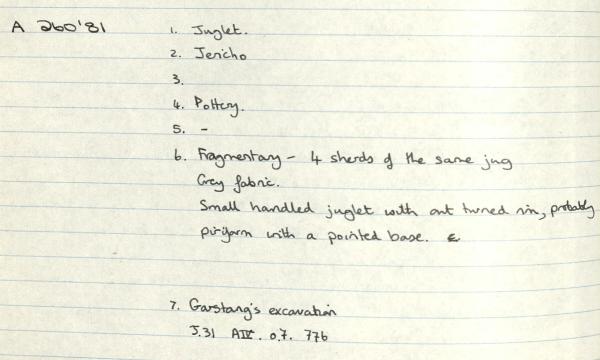 A 260'81
1. Juglet.
2. Jericho
3.
4. Pottery.
5. -
6. Fragmentary - 4 sherds of the same jug
Grey fabric.
Small handled juglet with out turned rim, probably
piriform with a pointed base.
7. Garstang's excavation
J.31 AIV. 0.7. 776